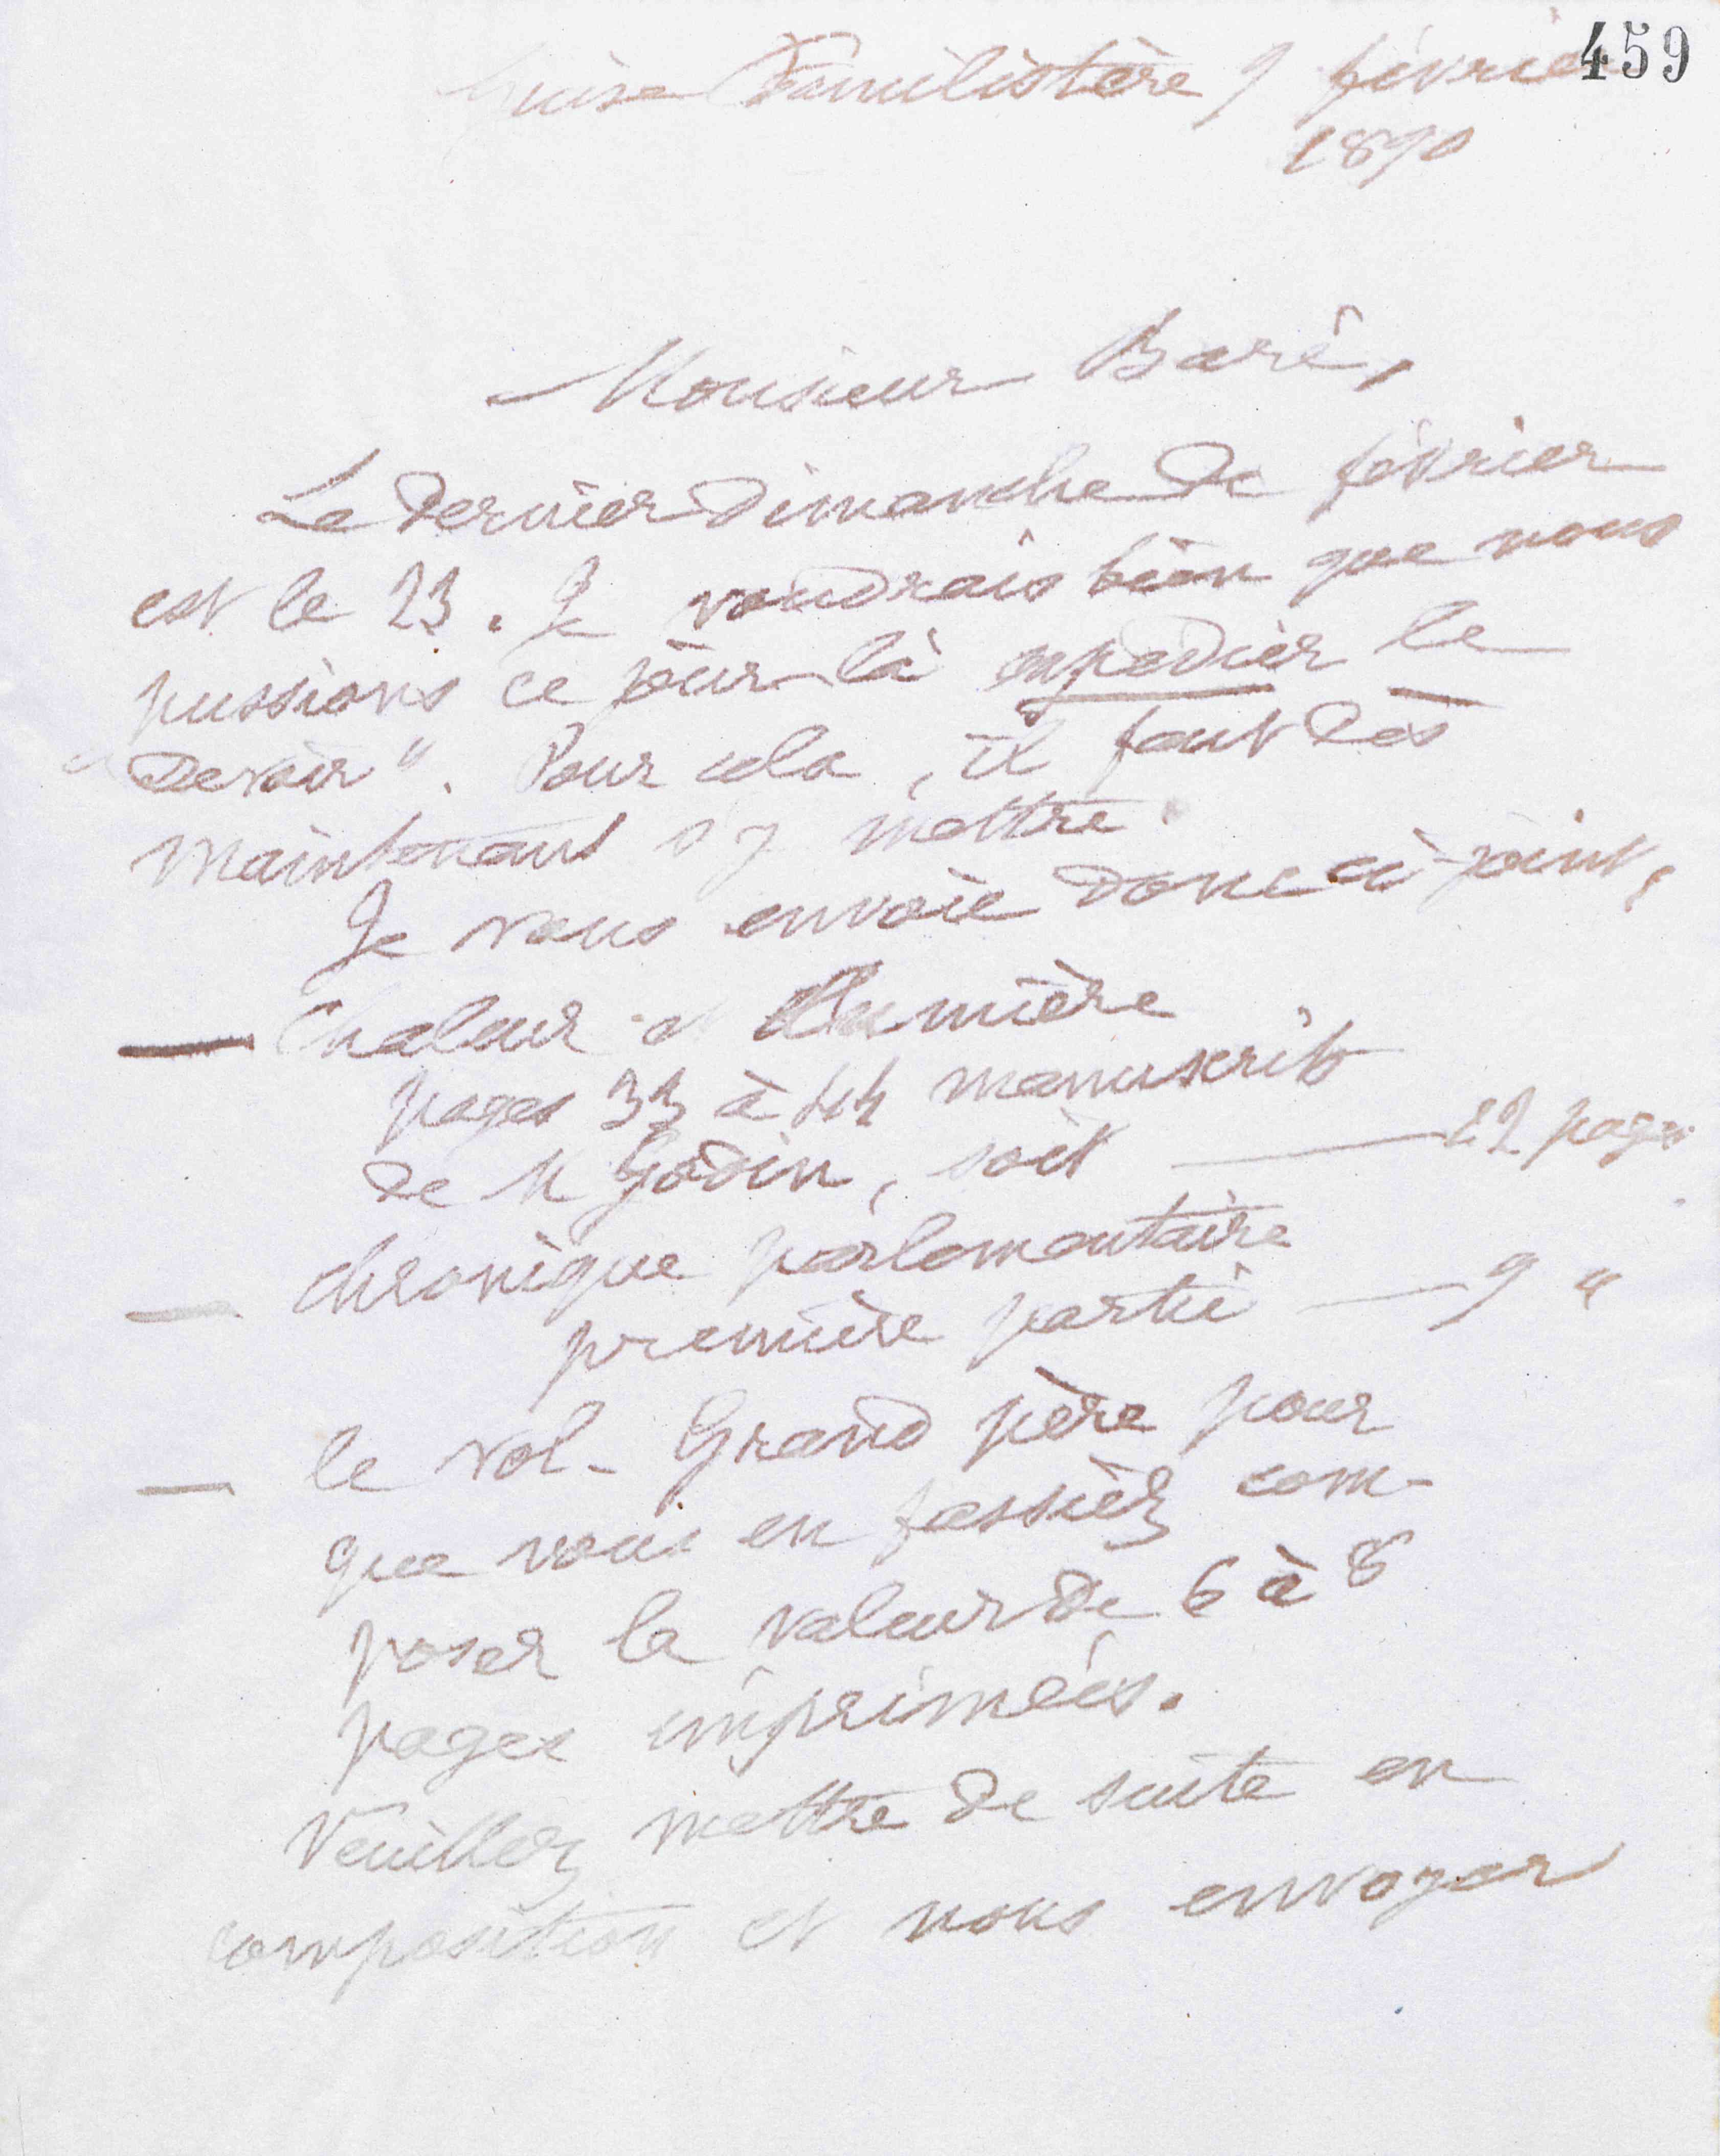 459
Guise Familistère 9 février
1890
Monsieur Baré,
Le dernier dimanche de février
est le 23. Je voudrais bien que nous
pussions ce jour-là expédier le
"Devoir". Pour cela, il faut dès
maintenant s'y mettre.
Je vous envoie donc ci-joint,
— Chaleur et Lumière
pages 33 à 44 manuscrits
de M Godin, soit — 12 pages
— chronique parlementaire
première partie — 9 "
— le vol. Grand père pour
que vous en fassiez com-
poser la valeur de 6 à 8
pages imprimées.
Veuillez mettre de suite en
composition et nous envoyer